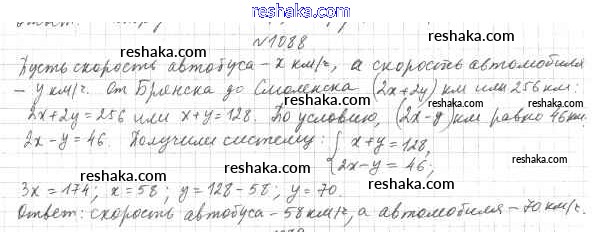 reshaka.com
№1088
reshaka.com reshaka.com
Пусть скорость автобуса - x км/ч, а скорость автомобиля
- y км/ч. От Брянска до Смоленска (2x+2y) км или 256 км:
reshaka.com reshaka.com
2x+2y=256 или x+y=128. По условию, (2x-y) км равно 46 км:
2x-y=46. Получили систему: { x+y=128,
2x-y=46;
reshaka.com reshaka.com
3x=174; x=58; y=128-58; y=70.
reshaka.com reshaka.com
Ответ: скорость автобуса - 58 км/ч, а автомобиля - 70 км/ч.